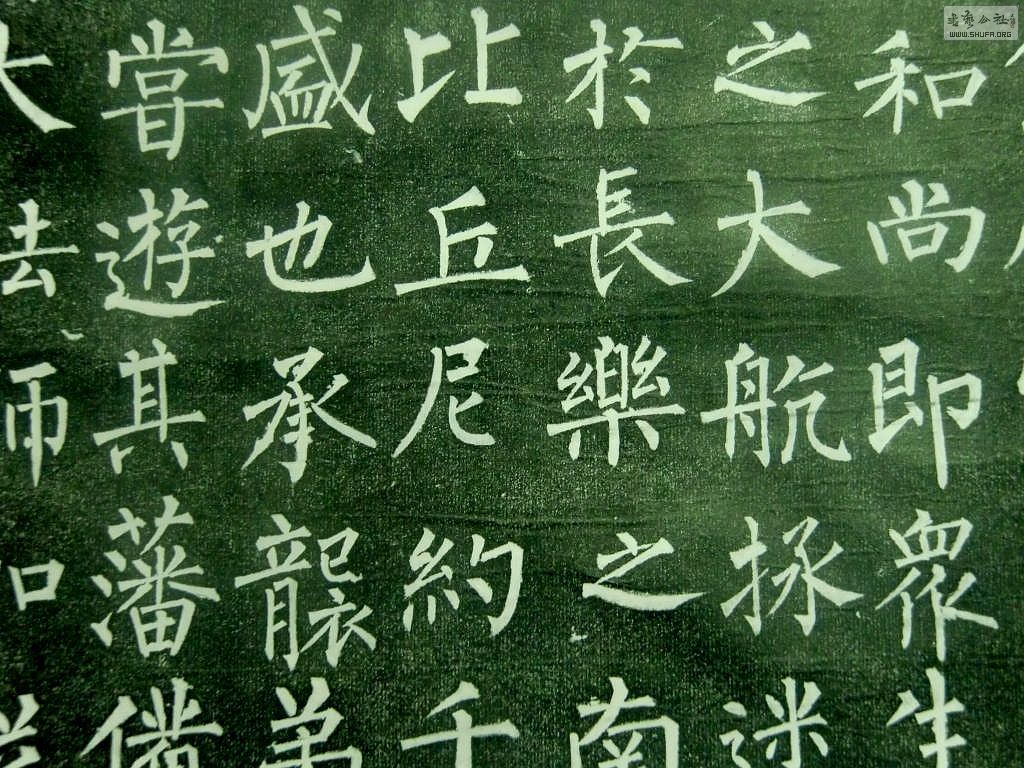 和尚即衆生
之大航拯迷
於長樂之南
比丘尼約千
盛也承襲弟
嘗遊其藩備
大法師和從
書藝公社
WWW.SHUFA.ORG